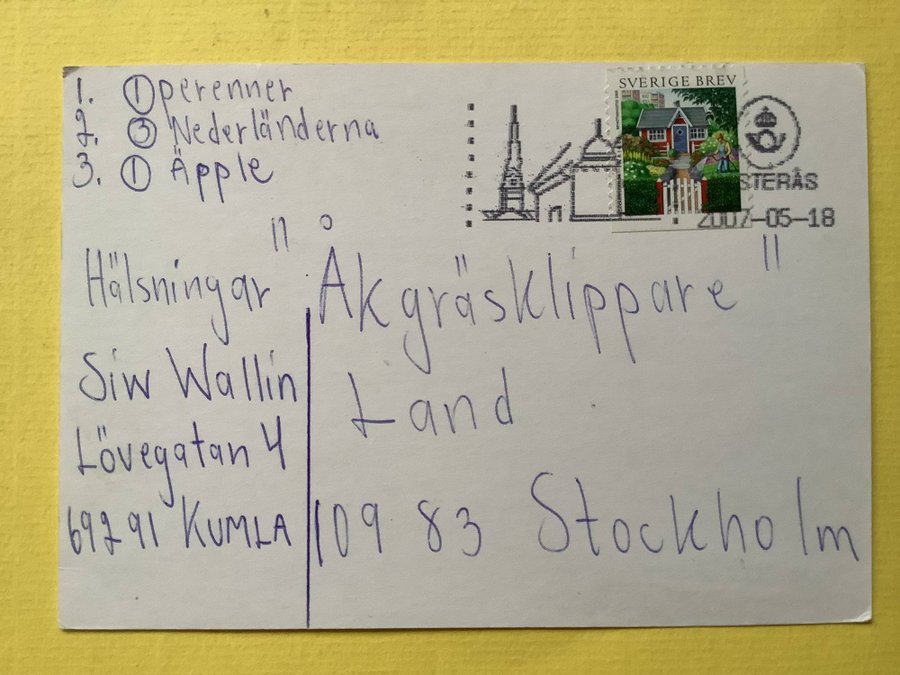 1. ① perenner
2. ③ Nederländerna
3. ① Äpple
SVERIGE BREV
STERÅS
2007-05-18
Hälsningar
Siw Wallin
Lövegatan 4
69291 KUMLA
"Åkgräsklippare"
Land
109 83 Stockholm